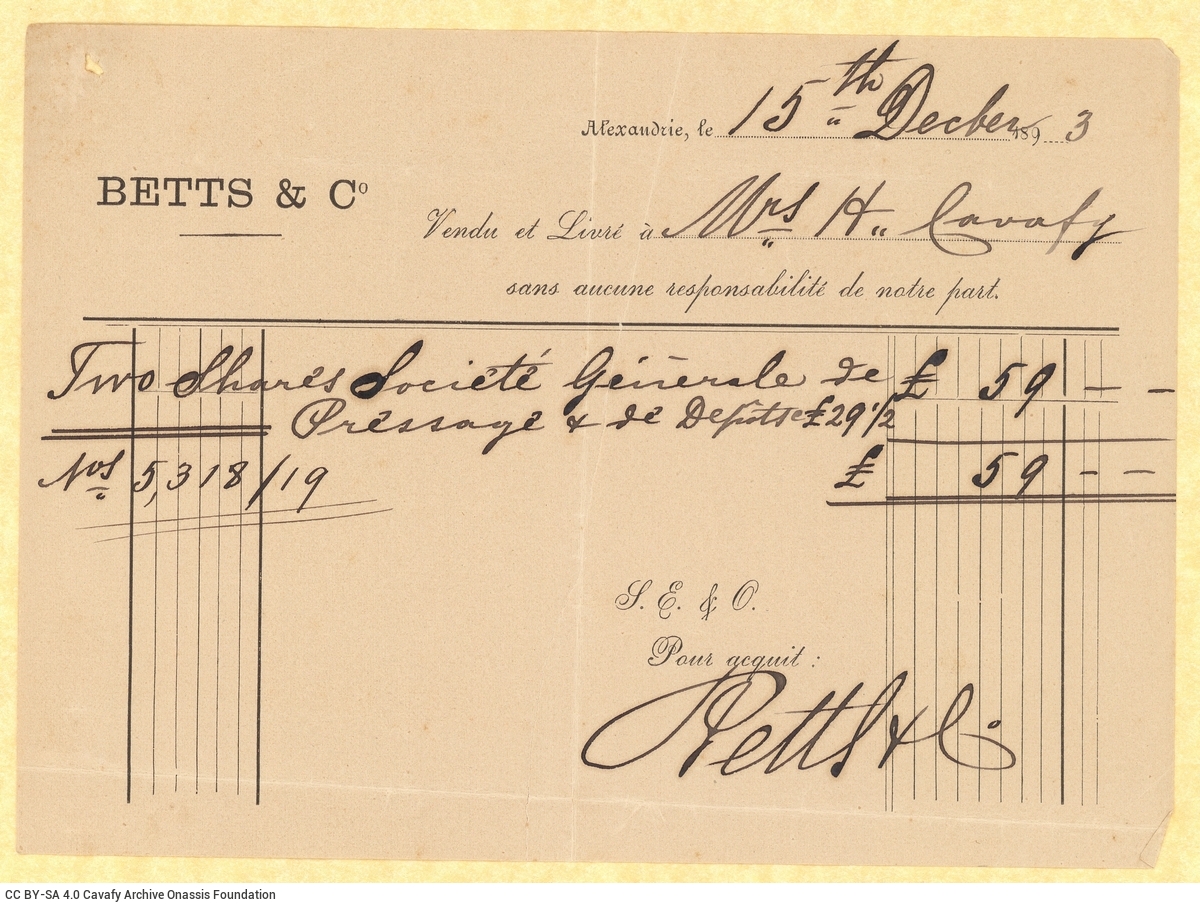 Alexandrie, le 15th Decber 1893
BETTS & Co
Vendu et Livré à Mrs H. Cavafy
sans aucune responsabilité de notre part.
Two Shares Société Générale de £ 59 – –
Préssage & de Depôts @ £29 1/2
£ 59 – –
Nos 5,318/19
S. E. & O.
Pour acquit :
Betts & Co
CC BY-SA 4.0 Cavafy Archive Onassis Foundation